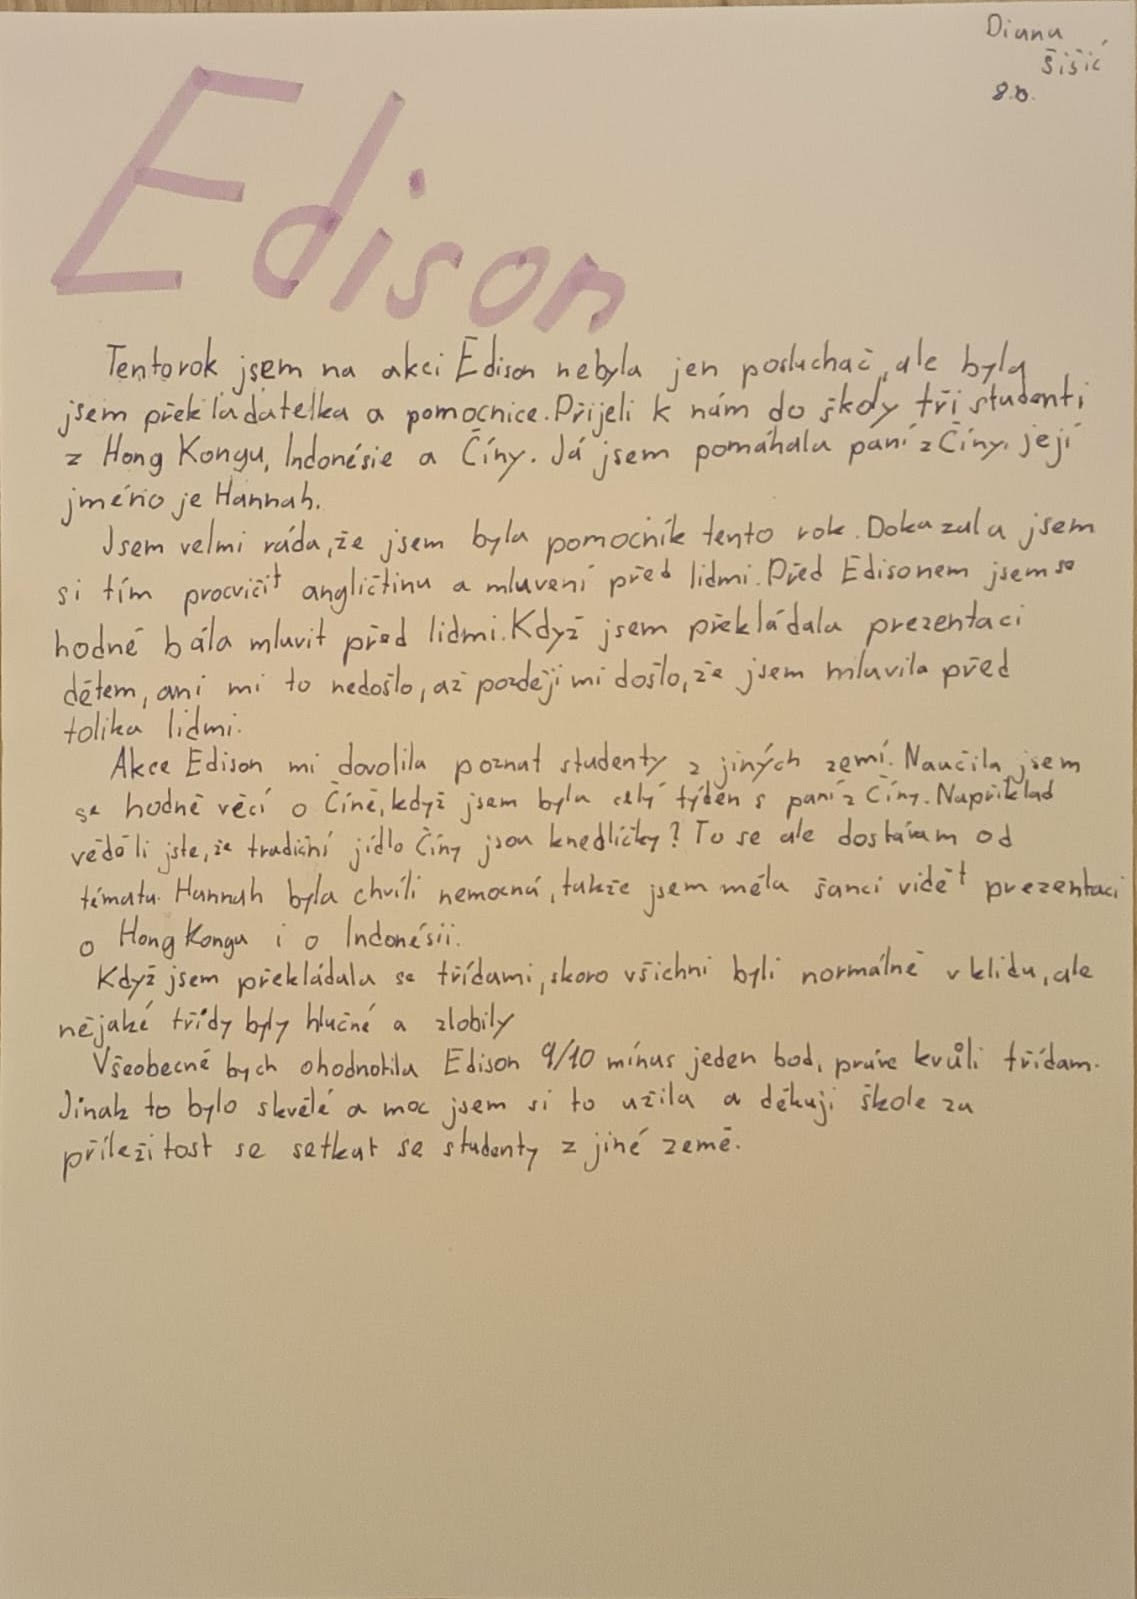 Diana
Šišić
8.b.
Edison
Tento rok jsem na akci Edison nebyla jen posluchač, ale byla
jsem překladatelka a pomocnice. Přijeli k nám do školy tři studenti
z Hong Kongu, Indonésie a Číny. Já jsem pomáhala paní z Číny, její
jméno je Hannah.
Jsem velmi ráda, že jsem byla pomocník tento rok. Dokazala jsem
si tím procvičit angličtinu a mluvení před lidmi. Před Edisonem jsem se
hodně bála mluvit před lidmi. Když jsem překládala prezentaci
dětem, ani mi to nedošlo, až později mi došlo, že jsem mluvila před
tolika lidmi.
Akce Edison mi dovolila poznat studenty z jiných zemí. Naučila jsem
se hodně věcí o Číně, když jsem byla celý týden s paní z Číny. Například
věděli jste, že tradiční jídlo Číny jsou knedlíčky? To se ale dostávam od
tématu. Hannah byla chvíli nemocná, takže jsem měla šanci vidět prezentaci
o Hong Kongu i o Indonésii.
Když jsem překládala se třídami, skoro všichni byli normálně v klidu, ale
nějaké třídy byly hlučné a zlobily
Všeobecně bych ohodnotila Edison 9/10 mínus jeden bod, práve kvůli třídam.
Jinak to bylo skvělé a moc jsem si to užila a děkuji škole za
příležitost se setkat se studenty z jiné země.